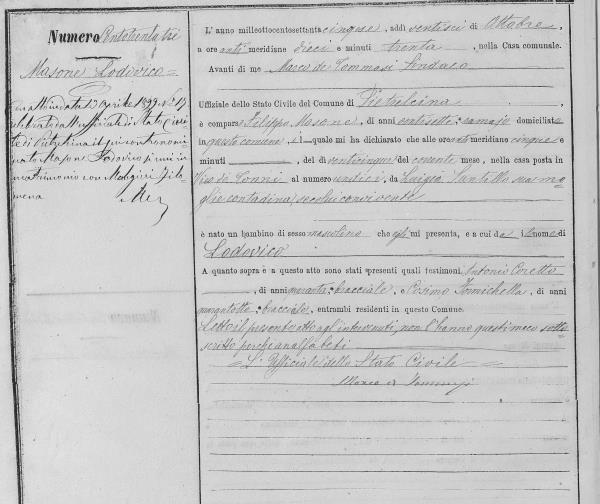 Numero Centotrenta tre
Masone Lodovico
Con atto in data 13 Aprile 1899 N. 17
celebrato dall'uffiziale di Stato Civi-
le di Pietrelcina il qui contronomi-
nato Masone Lodovico si unì in
matrimonio con Filo-
mena
L'anno milleottocentosettantacinque, addì ventisei di Ottobre
a ore anti meridiane dieci e minuti trenta, nella Casa comunale.
Avanti di me Marco de Tommasi Sindaco
Uffiziale dello Stato Civile del Comune di Pietrelcina
è comparso Filippo Masone, di anni ventisette: ramajo domiciliato
in questo comune, il quale mi ha dichiarato che alle ore anti meridiane cinque e
minuti, del dì venticinque del corrente mese, nella casa posta in
Vico di al numero undici, da Luigia Santillo sua mo-
glie contadina, secolui convivente
è nato un bambino di sesso mascolino che egli mi presenta, e a cui da il nome di
Lodovico
A quanto sopra e a questo atto sono stati presenti quali testimoni Antonio
, di anni quaranta: bracciale, e Cosimo Formichella, di anni
quarantotto: bracciale, entrambi residenti in questo Comune.
Letto il presente atto agl'intervenuti, non l'hanno questi meco sotto-
scritto perché analfabeti
L'Uffiziale dello Stato Civile
Marco de Tommasi